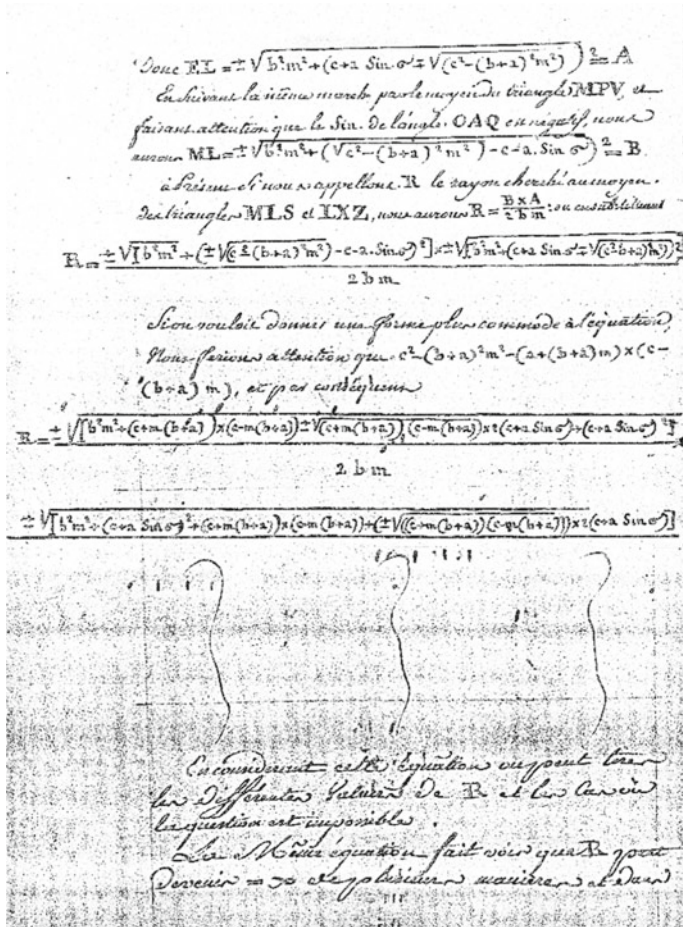 Donc EL = ±√b².m²+(c+a Sin σ ∓ √(c²-(b+a)²m²))² = A
En Suivant la même march par le moyen du triangle MPV, et
faisant attention que le Sin. de l'angle OAQ est négatif, nous
aurons ML = ±√b².m²+(√c²-(b+a)²m²)-c-a.Sin σ)² = B.
à Présent Si nous appellons R le rayon cherché au moyen.
des triangles MLS et LXZ, nous aurons R = B×A/2bm : ou en substituant
R = ±√[b²m²+(±√(c²-(b+a)²m²)-c-a.Sin σ)²]×±√[b²m²+(c+a Sin σ ∓ √(c²-(b+a)²m²))²
2bm
Si on vouloit donner une forme plus commode à l'équation,
Nous ferions attention que c²-(b+a)²m²-(a+(b+a)m)×(c-
(b+a)m), et par conséquent
R = ±√[b²m²+(c+m(b+a))×(c-m(b+a))±√(c+m(b+a))(c-m(b+a))×2(c+a Sin σ)+(c+a Sin σ)²]
2bm
±√[b²m²+(c+a Sin σ)²+(c+m(b+a))×(c-m(b+a))+(±√((c+m(b+a))(c-m(b+a)))×2(c+a Sin σ)]
En considérant cette équation on peut tirer
les différentes Valeurs de R et les Cas où
la question est imposible.
La Même équation fait voir que R peut
devenir = ∞ de plusieurs manieres et dans